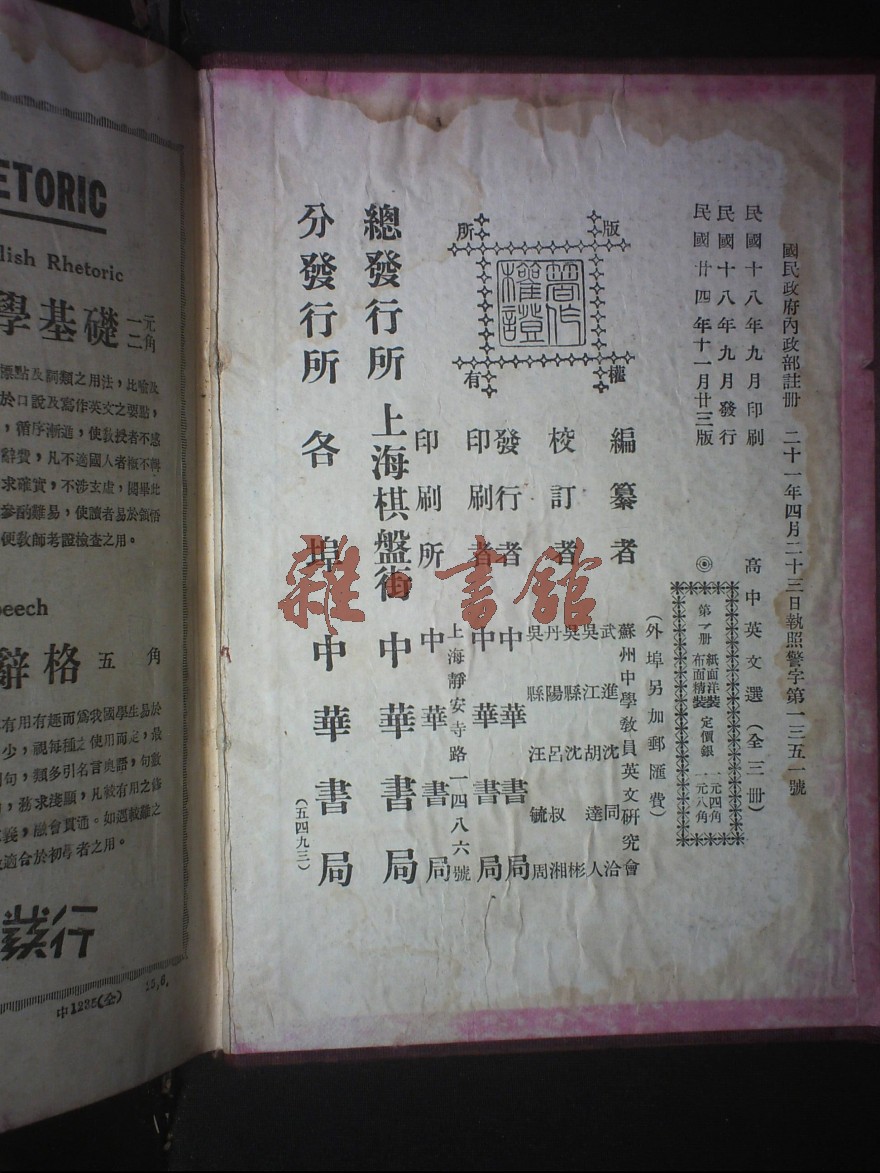 國民政府內政部註冊 二十一年四月二十三日執照警字第一三五一號
民國十八年九月印刷
民國十八年九月發行
民國廿四年十一月廿三版
高中英文選（全三冊）
◎
紙面洋裝
布面精裝
定價銀
一元四角
一元八角
（外埠另加郵匯費）
版權所有
著作權證
編纂者
蘇州中學教員英文研究會
校訂者
武進沈同洽
吳江胡達人
吳縣沈彬
丹陽呂叔湘
吳縣汪毓周
發行者 中華書局
印刷者 中華書局
印刷所
上海靜安寺路一四八六號
中華書局
總發行所 上海棋盤街 中華書局
分發行所 各埠 中華書局
（五四九三）
雜·書館
ETORIC
lish Rhetoric
學基礎
一元
二角
標點及詞類之用法，比喻及
於口說及寫作英文之要點，
，循序漸進，使教授者不感
辭費，凡不適國人者概不輯
求確實，不涉玄虛，閱畢此
參酌難易，使讀者易於領悟
便教師考證檢查之用。
peech
辭格 五角
有用有趣而為我國學生易於
少，視每種之使用而定，最
句，類多引名言典語，句數
，務求淺顯，凡較有用之修
義，融會貫通。如遇較難之
適合於初學者之用。
發行
中1235(全) 15,6,